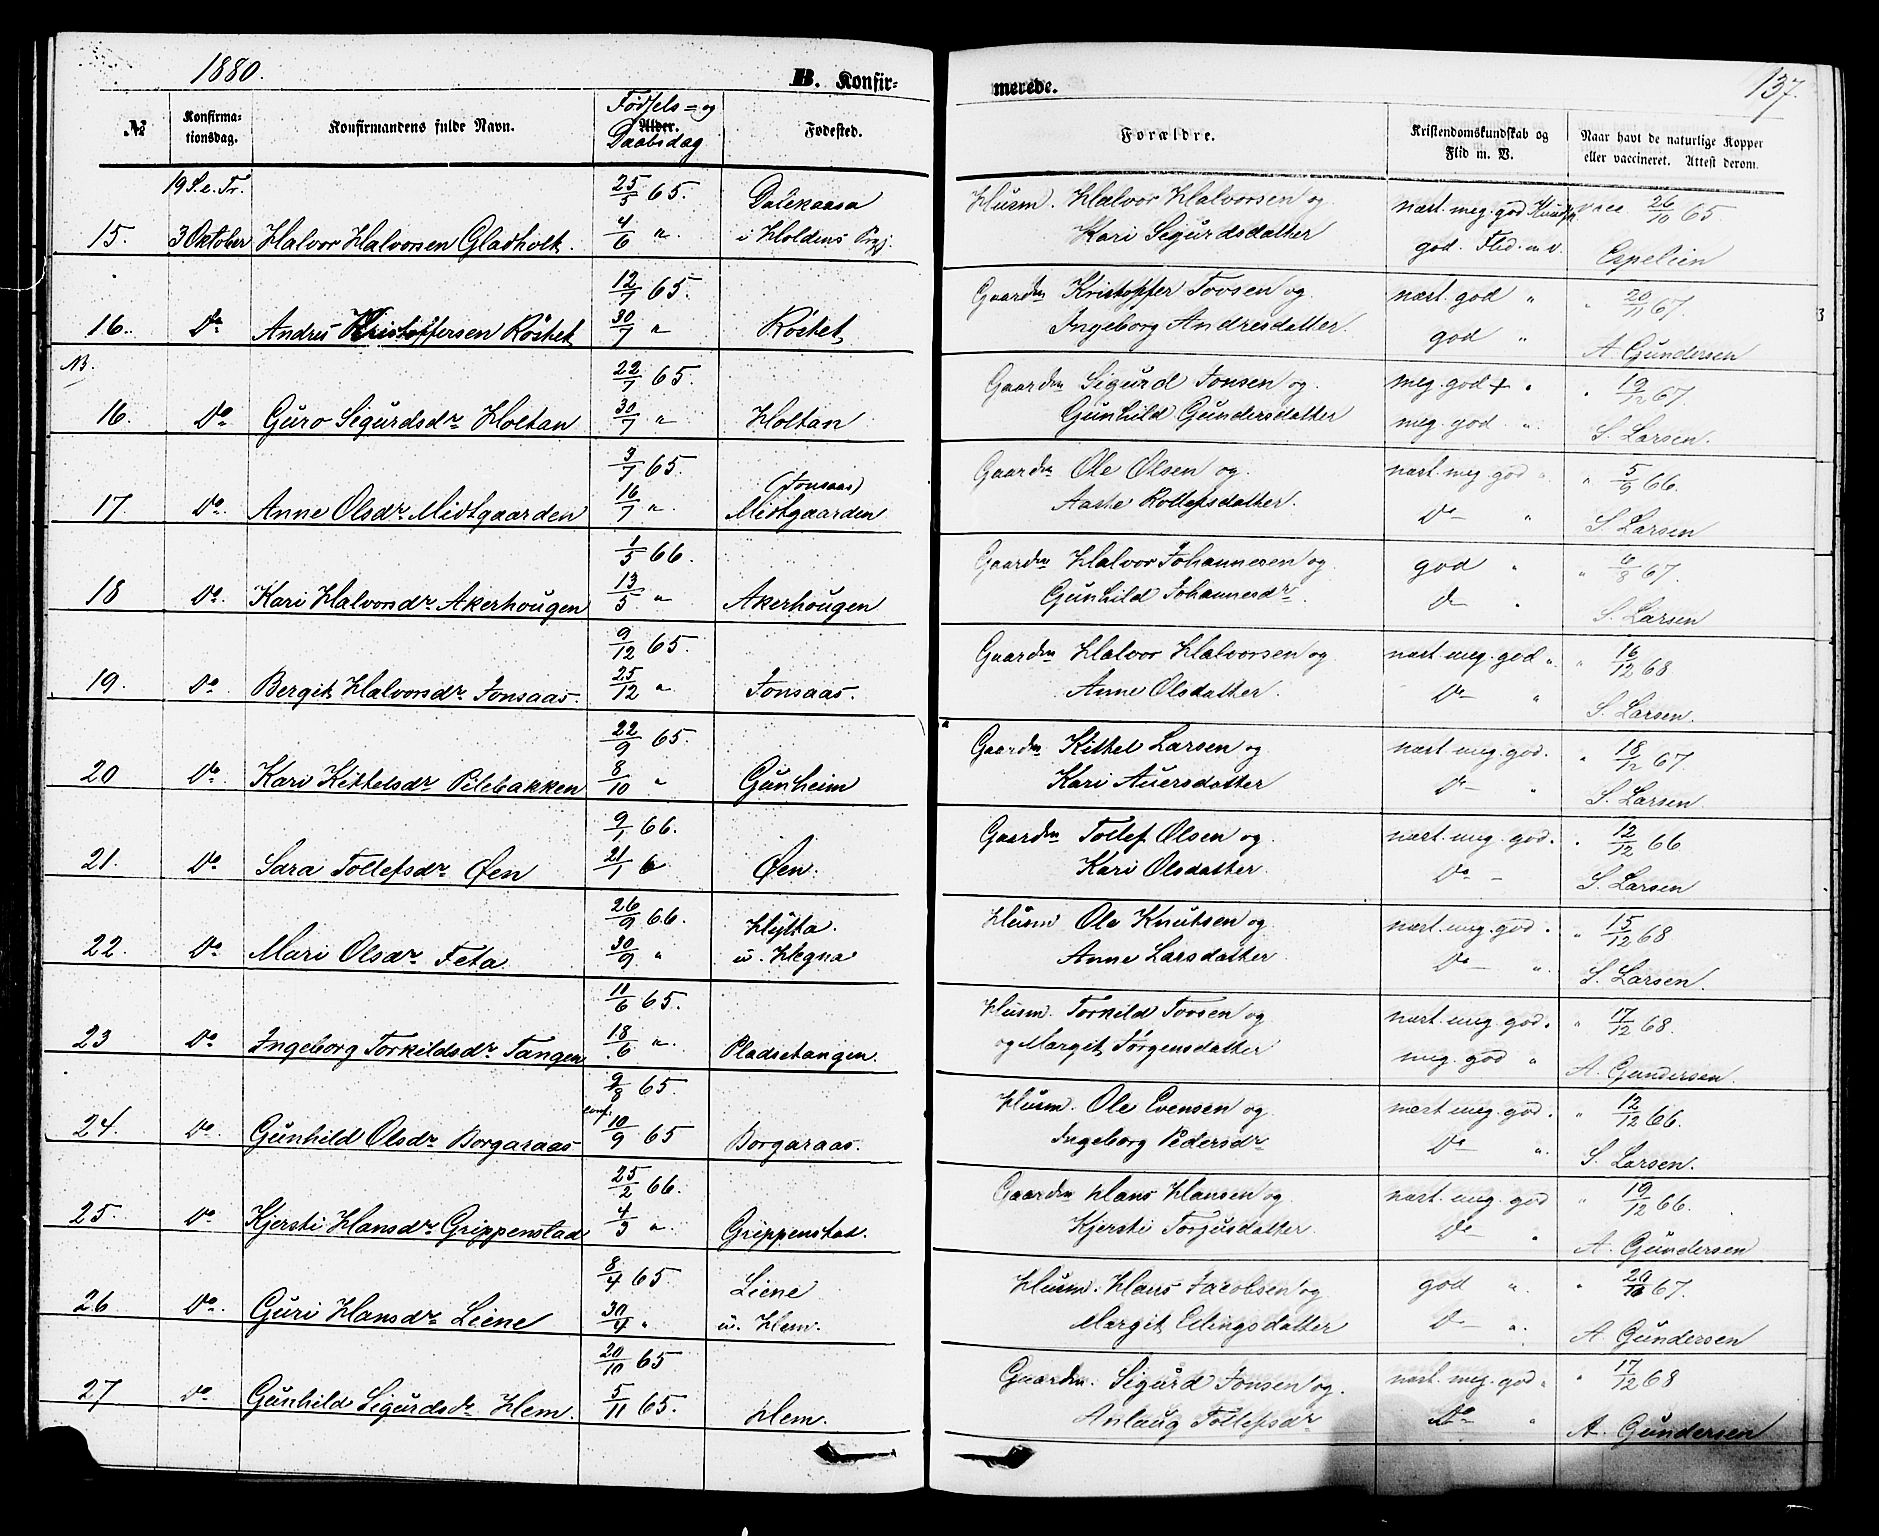 1880.
B. Konfir-
merede.
137.
№
Konfirma-
tionsdag.
Konfirmandens fulde Navn.
Fødsels- og
Alder.
Daabsdag
Fødested.
Forældre.
Kristendomskundskab og
Flid m. V.
Naar havt de naturlige Kopper
eller vaccineret. Attest derom.
19 S. e. Tr. 25/5 65. Dalekaasa Husm. Halvor Halvorsen og nært. meg. god Kundsk. vacc. 26/10 65.
15. 3 Oktober Halvor Halvorsen Gladholt. 4/6 " i Holdens Prgj. Kari Sigurdsdatter god. Flid. m. v. Espelien
12/7 65. Gaardm Kristopfer Tovsen og nært. god " " 20/11 67.
16. Do Andres Kristoffersen Röshet 30/7 " Röshet Ingeborg Andresdatter. god " A. Gundersen
NB. 22/7 65. Gaardm Sigurd Jonsen og meg. god + " " 19/12 67.
16. Do Guro Sigurdsdr Holtan 30/7 " Holtan Gunhild Gundersdatter meg. god " S. Larsen.
3/7 65. (Jonsaas) Gaardm Ole Olsen og nært. meg. god " " 5/9 66.
17. Do. Anne Olsdr Midtgaarden 16/7 " Midtgaarden Aaste Rollefsdatter. Do " S. Larsen
1/5 66. Gaardm Halvor Johannesen og god " " 6/8 67.
18 Do. Kari Halvorsdr Akerhougen 13/5 " Akerhougen Gunhild Johannesdr. Do " S. Larsen
9/12 65. Gaardm Halvor Halvorsen og nært. meg. god " " 16/12 68
19. Do Bergit Halvorsdr Jonsaas. 25/12 " Jonsaas. Anne Olsdatter. Do " S. Larsen.
22/9 65. Gaardm Kittel Larsen og nært meg. god. " 18/12 67
20 Do. Kari Kittelsdr Pilebakken 8/10 " Gunheim Kari Auersdatter Do " S. Larsen.
9/1 66. Gaardm Tollef Olsen og nært. meg. god. " 12/12 66
21. Do Sara Tollefsdr Øen 21/1 6 Øen. Kari Olsdatter. Do - S. Larsen
26/9 66. Hytta. Husm Ole Knutsen og nært. meg. god. " 15/12 68
22. Do Mari Olsdr Feta 30/9 " u. Hegna Anne Larsdatter Do " S. Larsen.
11/6 65. Husm. Torkild Tovsen og nært. meg. god. " 17/12 68.
23 Do Ingeborg Torkildsdr Tangen 18/6 " Pladsetangen. og Margit Jörgensdatter meg. god " A. Gundersen.
9/8 65. Husm. Ole Evensen og nært meg. god. " 12/12 66.
24. Do Gunhild Olsdr Borgaraas conf. 10/9 65 Borgaraas. Ingeborg Pedersdr Do " S. Larsen.
25/2 66. Gaardm Hans Hansen og nært. meg. god " 19/12 66.
25. Do Kjersti Hansdr Grippenstad 4/3 " Grippenstad. Kjersti Torjusdatter Do " A. Gundersen
8/4 65 Liene Husm. Hans Jacobsen og god " " 20/10 67.
26 Do. Guri Hansdr Liene 30/4 " u. Hem. Margit Ellingsdatter Do " A. Gundersen
20/10 65 Gaardm. Sigurd Jonsen og nært. meg. god " " 17/12 68
27 Do Gunhild Sigurdsdr Hem. 5/11 65. Hem. Anlaug Tollefsdr Do " A. Gundersen